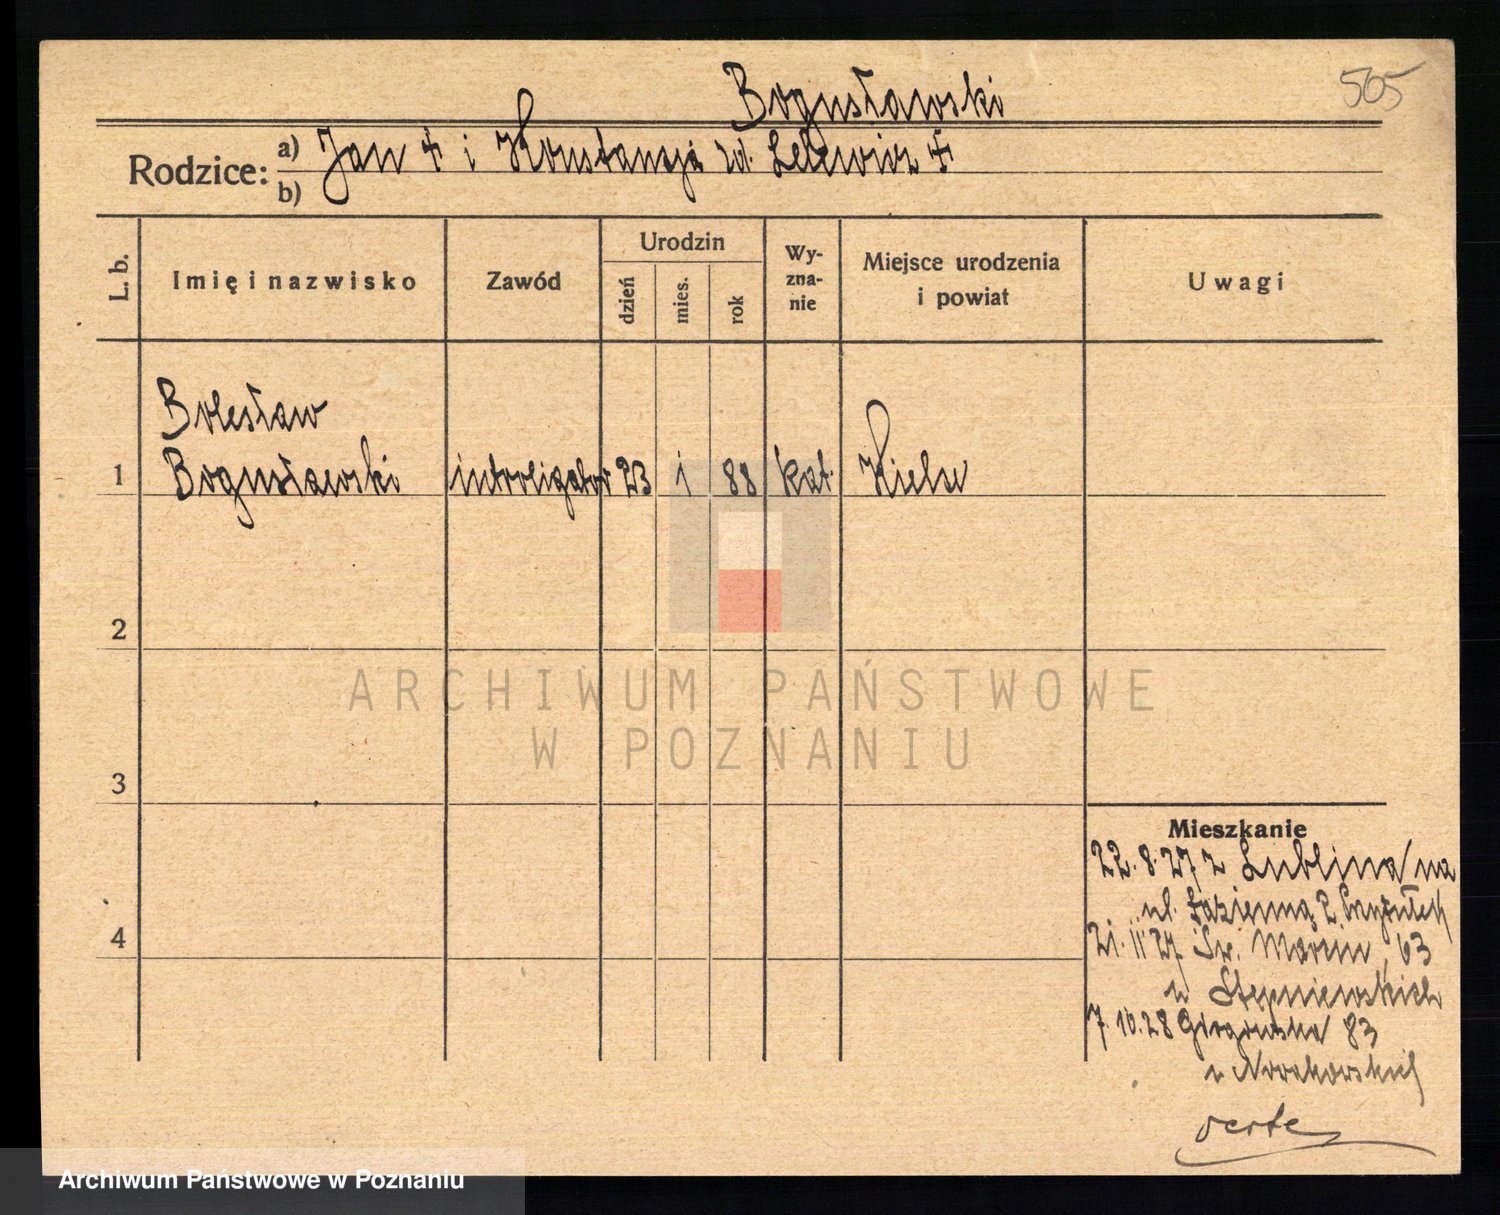 Bogusławski
505
Rodzice: a) Jan ✝ i Konstancja zd. Lelewicz ✝
b)
L. b.
Imię i nazwisko
Zawód
Urodzin
dzień
mies.
rok
Wy-
zna-
nie
Miejsce urodzenia
i powiat
Uwagi
Bolesław
1 Bogusławski introligator 23 1 88 kat. Kielce
2
3
4
Mieszkanie
22.8.27 z Lublina na
ul. Łazienną 2 Przytułek
21.11.27 Św. Marcin 63
u Stępniewskich
7.10.28 83
u Nowakowskich
verte
ARCHIWUM PAŃSTWOWE
W POZNANIU
Archiwum Państwowe w Poznaniu